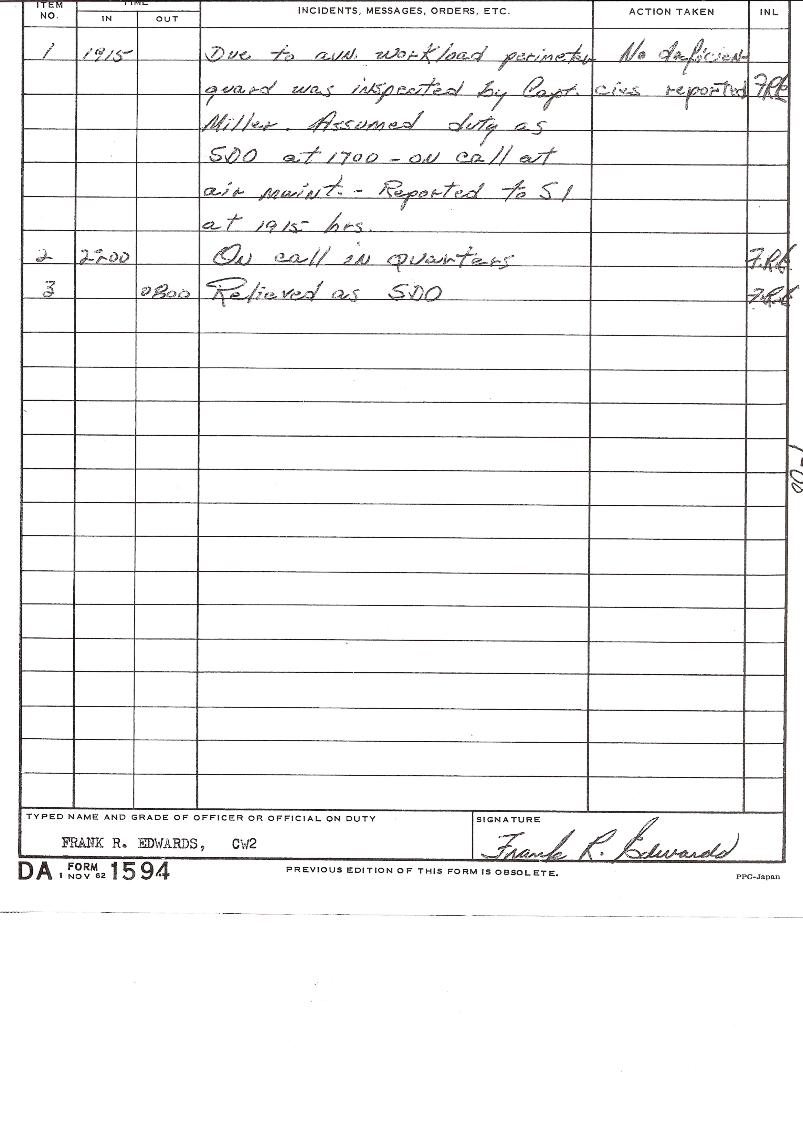 ITEM NO. TIME IN OUT INCIDENTS, MESSAGES, ORDERS, ETC. ACTION TAKEN INL
1 1915 Due to avn. workload perimeter No deficien-
guard was inspected by Capt. cies reported FRE
Miller. Assumed duty as
SDO at 1700 - on call at
air maint. - Reported to S1
at 1915 hrs.
2 2200 On call in quarters FRE
3 0800 Relieved as SDO FRE
TYPED NAME AND GRADE OF OFFICER OR OFFICIAL ON DUTY SIGNATURE
FRANK R. EDWARDS, CW2 Frank R. Edwards
DA FORM 1 NOV 62 1594 PREVIOUS EDITION OF THIS FORM IS OBSOLETE. PPC-Japan